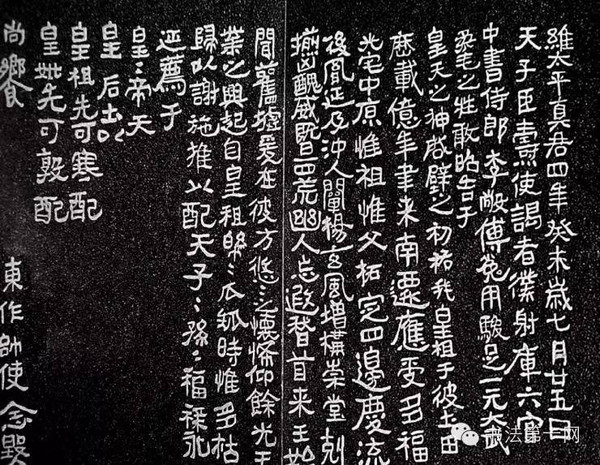 維太平真君四年癸未歲七月廿五日
天子臣燾使謁者僕射庫六官
中書侍郎李敞傅㝹用駿足一元大武
柔毛之牲敢昭告于
皇天之神啓辟之初祐我皇祖于彼土田
歷載億年聿來南遷應受多福
光宅中原惟祖惟父拓定四邊慶流
後胤延及沖人闡揚玄風增構崇堂剋
揃凶醜威暨四荒幽人忘遐稽首来王始
聞舊墟爰在彼方悠〻之懷希仰餘光王
業之興起自皇祖綿〻瓜瓞時惟多祜
歸以謝施推以配天子〻孫〻福祿永
延薦于
皇〻帝天
皇 后土以
皇祖先可寒配
皇妣先可敦配
尚饗
東作帥使念鑿
书法第一网